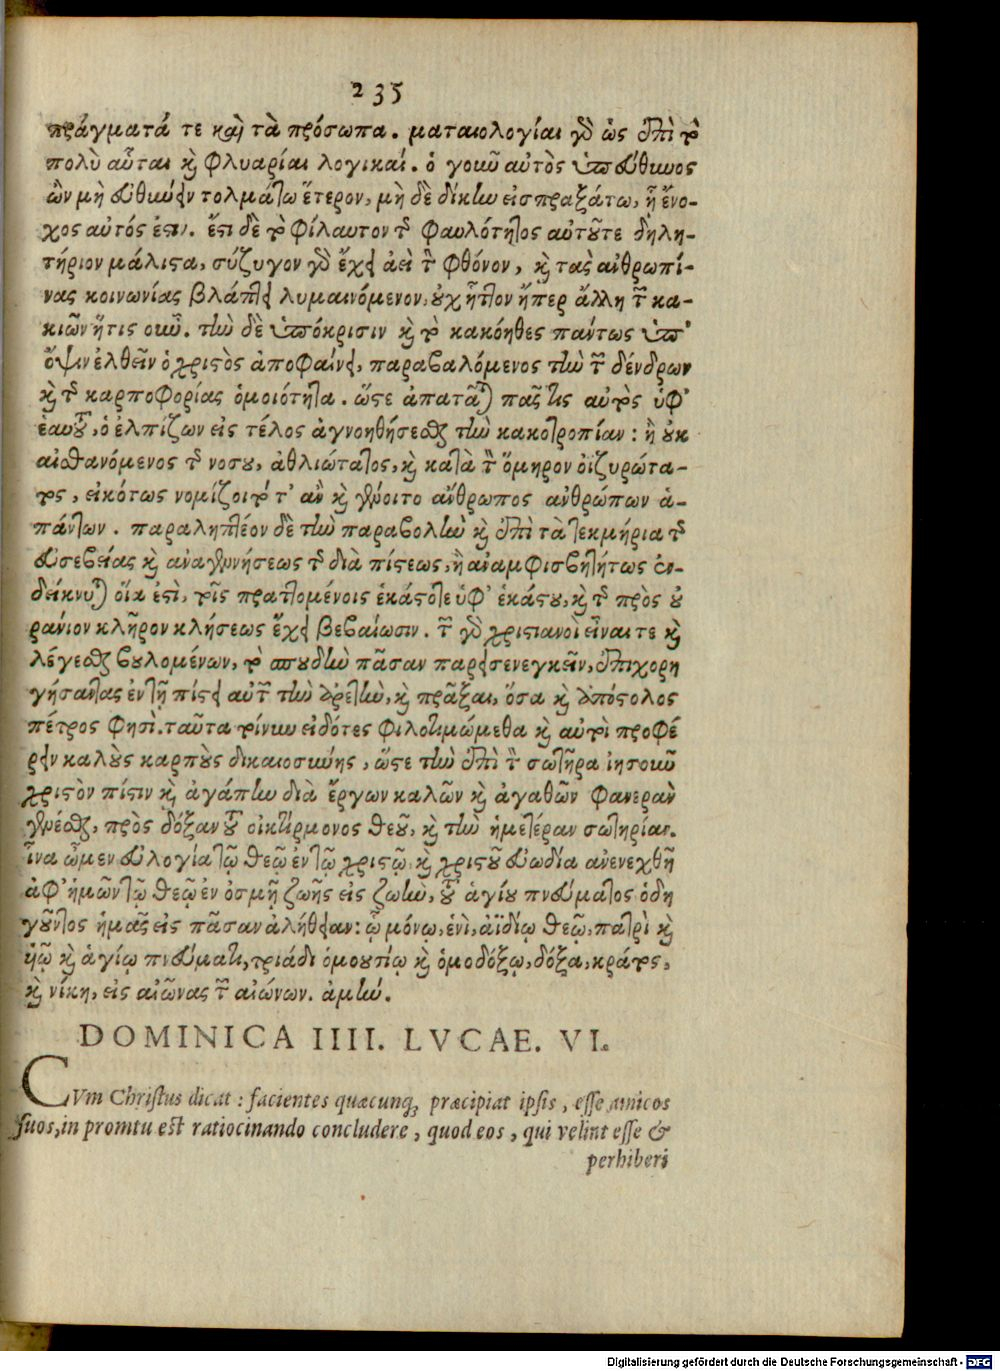 235
πράγματά τε καὶ τὰ πρόσωπα. ματαιολογίαι γὸ ὡς ἐπὶ τὸ
πολὺ αὗται καὶ φλυαρίαι λογικαί. ὁ γοιιῦ αὐτὸς ὑπεύθυνος
ὢν μὴ εὐθύνειν τολμάτω ἕτερον, μὴ δὲ δίκην εἰσπραξάτω, ᾗ ἔνο-
χος αὐτός ἐστιν. ἔστι δὲ τὸ φίλαυτον τῆς φαυλότητος αὐτοῦτε δηλη-
τήριον μάλιστα, σύζυγον γὸ ἔχει ἀεὶ τὸν φθόνον, καὶ τὰς ἀνθρωπί-
νας κοινωνίας βλάπτει λυμαινόμενον, οὐχ ἧττον ἤπερ ἄλλη τῶν κα-
κιῶν ἥτις οὖν. τὴν δὲ ὑπόκρισιν καὶ τὸ κακόηθες πάντως ὑπ'
ὄψιν ἐλθεῖν ὁ χριστὸς ἀποφαίνει, παραβαλόμενος τὴν τῶν δένδρων
καὶ τῆς καρποφορίας ὁμοιότητα. ὥστε ἀπατᾶται πᾶς τις αὐτὸς ὑφ'
ἑαυτοῦ, ὁ ἐλπίζων εἰς τέλος ἀγνοηθήσεσθαι τὴν κακοτροπίαν: ἢ οὐκ
αἰσθανόμενος τῆς νόσου, ἀθλιώτατος, καὶ κατὰ τὸν ὅμηρον ὀϊζυρώτα-
τος, εἰκότως νομίζοιτό τ' ἂν καὶ γένοιτο ἄνθρωπος ἀνθρώπων ἁ-
πάντων. παραληπτέον δὲ τὴν παραβολὴν καὶ ἐπὶ τὰ τεκμήρια τῆς
εὐσεβείας καὶ ἀναγεννήσεως τῆς διὰ πίστεως, ἣ ἀναμφισβητήτως ἐν-
δείκνυται οἵα ἐστὶ, τοῖς πραττομένοις ἑκάστοτε ὑφ' ἑκάστου, καὶ τῆς πρὸς οὐ
ράνιον κλῆρον κλήσεως ἔχει βεβαίωσιν. τῶν γὸ χριστιανοὶ εἶναι τε καὶ
λέγεσθαι βουλομένων, τὸ σπουδὴν πᾶσαν παρεισενεγκεῖν, ἐπιχορη
γήσαντας ἐν τῇ πίστει αὐτῶν τὴν ἀρετὴν, καὶ πρᾶξαι, ὅσα καὶ ἀπόστολος
πέτρος φησὶ. ταῦτα τοίνυν εἰδότες φιλοτιμώμεθα καὶ αὐτοὶ προφέ
ρειν καλοὺς καρποὺς δικαιοσύνης, ὥστε τὴν ἐπὶ τὸν σωτῆρα ἰησοῦν
χριστὸν πίστιν καὶ ἀγάπην διὰ ἔργων καλῶν καὶ ἀγαθῶν φανερὰν
γενέσθαι, πρὸς δόξαν τοῦ οἰκτίρμονος θεοῦ, καὶ τὴν ἡμετέραν σωτηρίαν.
ἵνα ὦμεν εὐλογία τῷ θεῷ ἐν τῷ χριστῷ, καὶ χριστοῦ εὐωδία ἀνενεχθῇ
ἀφ' ἡμῶν τῷ θεῷ ἐν ὀσμῇ ζωῆς εἰς ζωὴν, τοῦ ἁγίου πνεύματος ὁδη
γοῦντος ἡμᾶς εἰς πᾶσαν ἀλήθειαν: ᾧ μόνῳ, ἑνὶ, ἀϊδίῳ θεῷ, πατρὶ καὶ
ἡῷ καὶ ἁγίῳ πνεύματι, τριάδι ὁμουσίῳ καὶ ὁμοδόξῳ, δόξα, κράτος,
καὶ νίκη, εἰς αἰῶνας τῶν αἰώνων. ἀμήν.
DOMINICA IIII. LVCAE. VI.
CVm Christus dicat: facientes quæcunq; præcipiat ipsis, esse amicos
suos, in promtu est ratiocinando concludere, quod eos, qui velint esse &
perhiberi
Digitalisierung gefördert durch die Deutsche Forschungsgemeinschaft - DFG